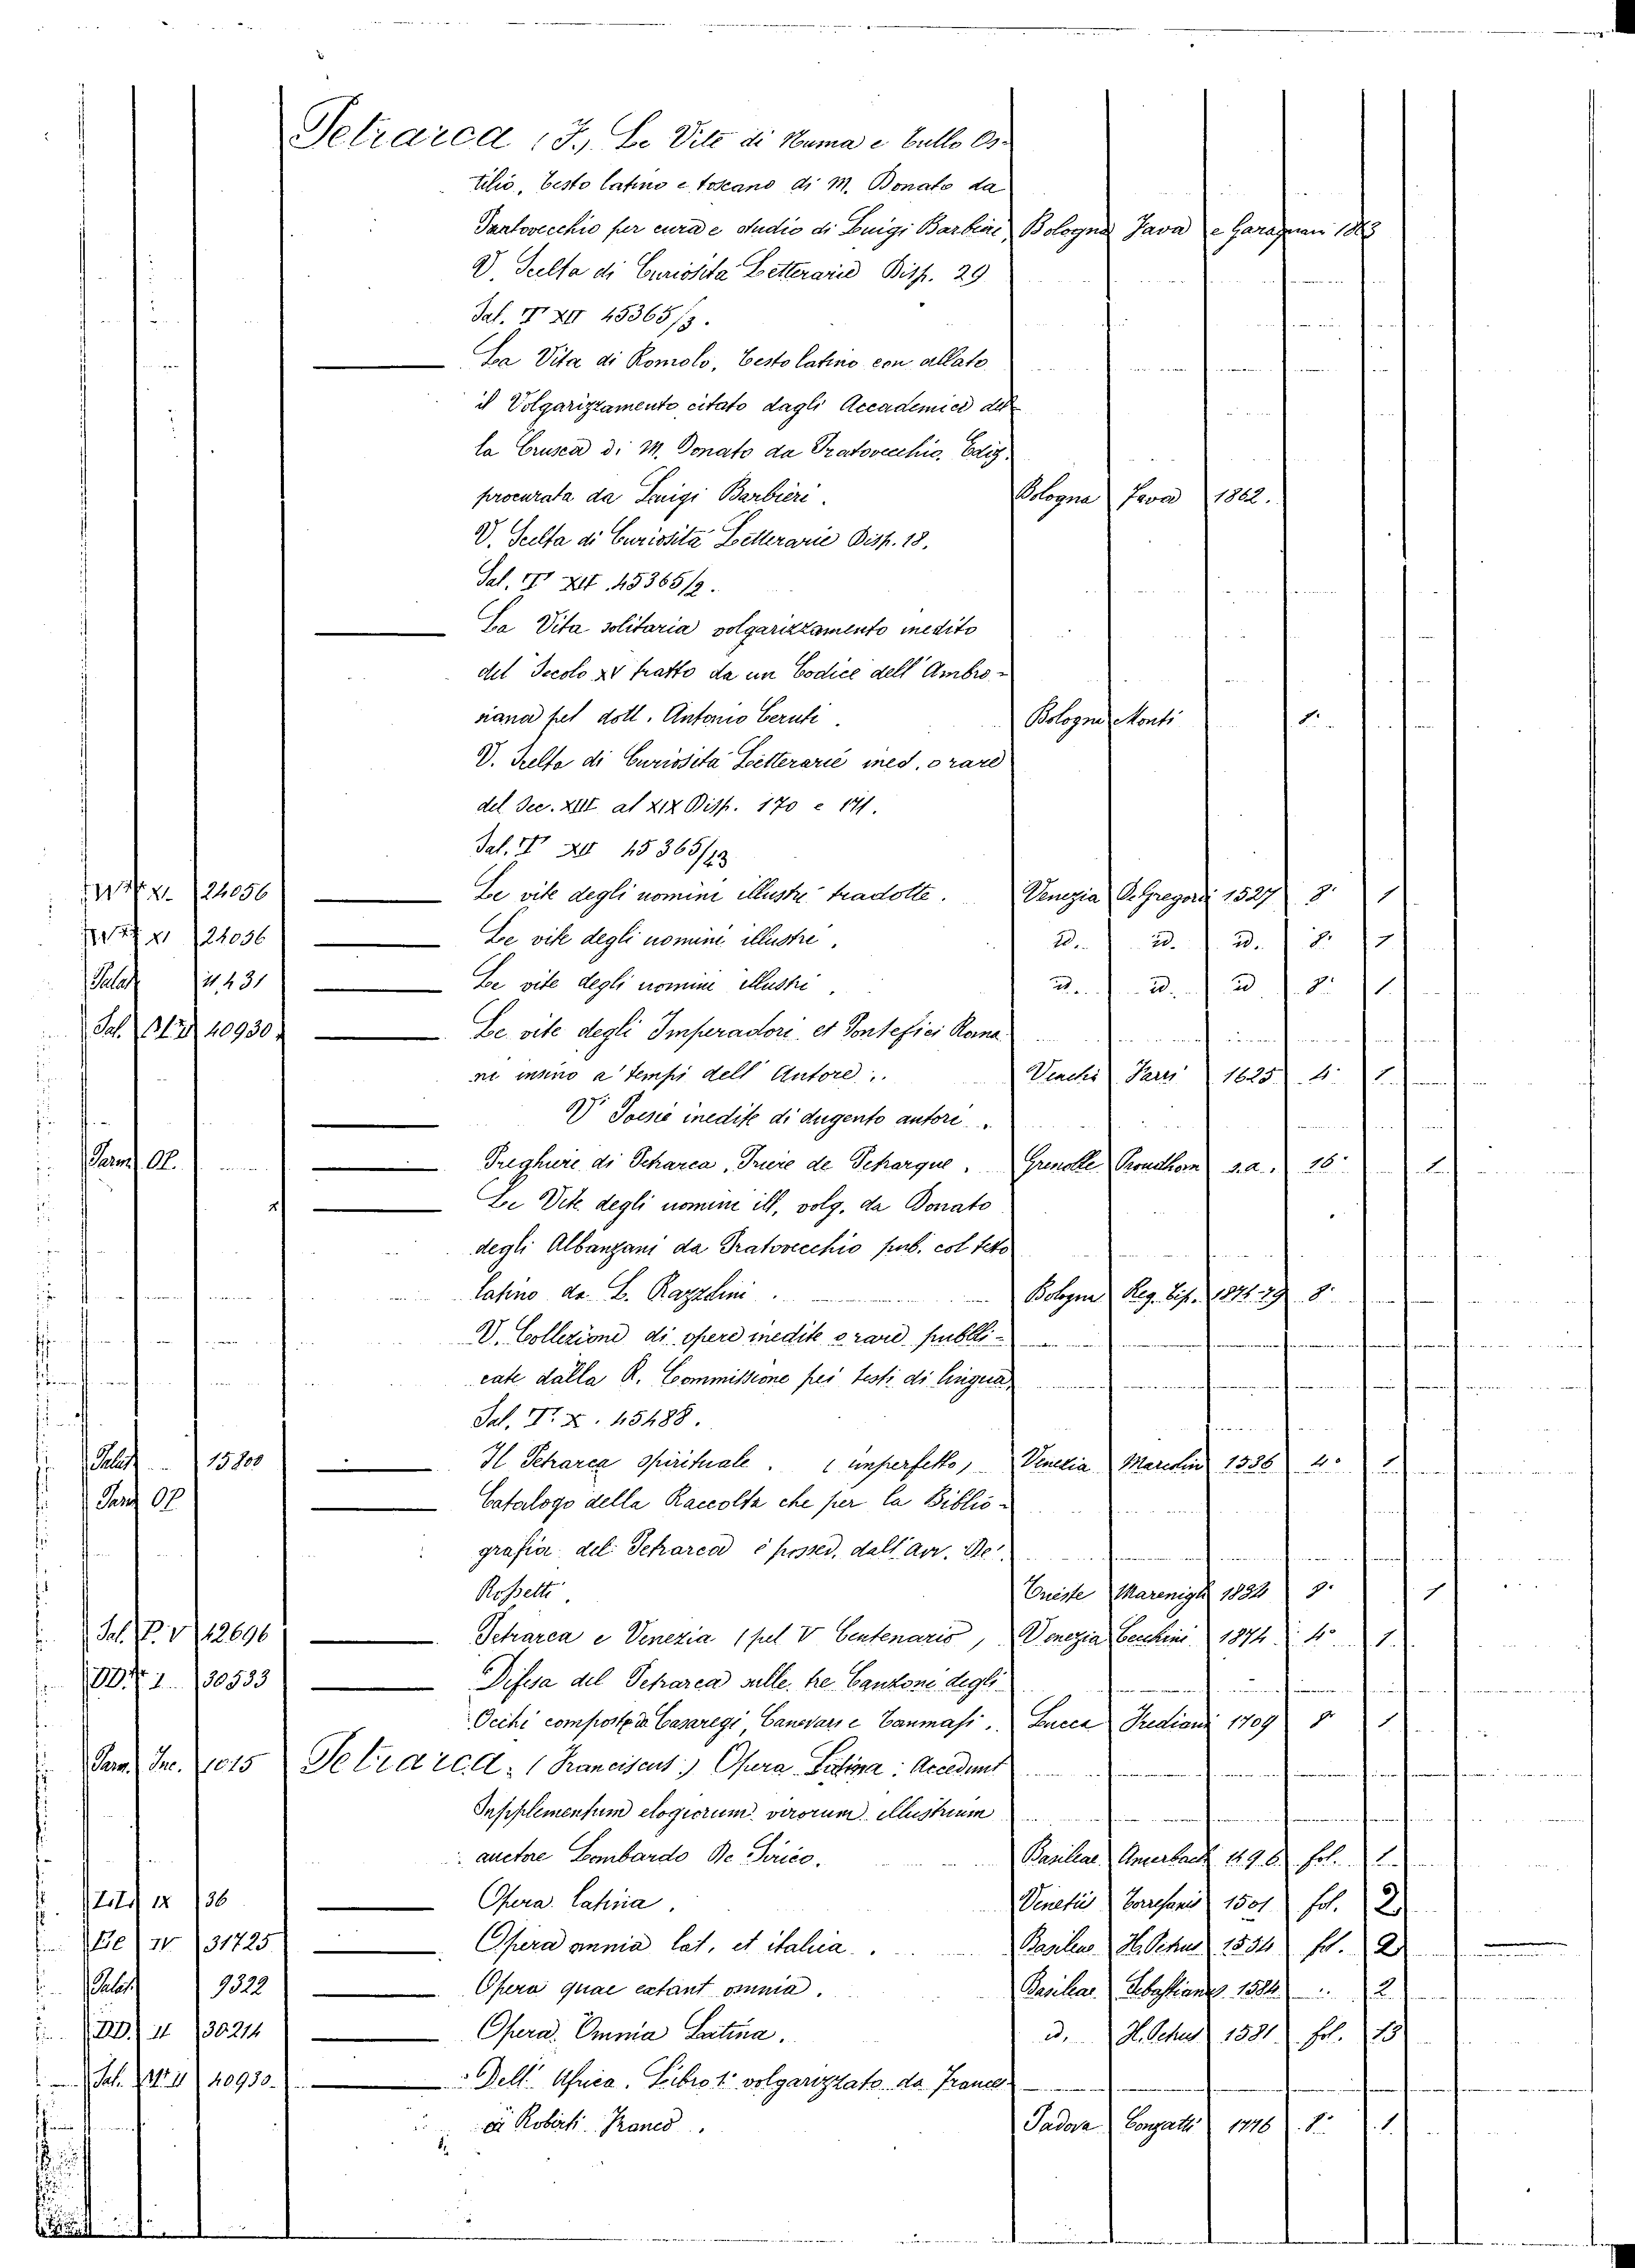 Petrarca (F.) Le Vite di Numa e Tullo Os-
tilio, Testo latino e toscano di M. Donato da
Pratovecchio per cura e studio di Luigi Barbieri Bologna Fava e Garagnani 1863
V. Scelta di Curiosità Letterarie Disp. 29
Sal. IV XII 45365/3.
La Vita di Romolo, Testo latino con allato
il Volgarizzamento citato dagli Accademici del-
la Crusca di M. Donato da Pratovecchio. Ediz.
procurata da Luigi Barbieri. Bologna Fava 1862.
V. Scelta di Curiosità Letterarie Disp. 18.
Sal. IV XII 45365/2.
La Vita solitaria volgarizzamento inedito
del Secolo XV tratto da un Codice dell'Ambro-
siana pel dott. Antonio Ceruti. Bologna Monti 8.
V. Scelta di Curiosità Letterarie ined. o rare
del Sec. XIII al XIX Disp. 170 e 171.
Sal. IV XII 45365/23
24056 Le vite degli uomini illustri tradotte. Venezia De Gregori 1527 8. 1
24056 Le vite degli uomini illustri. id. id. id. 8. 1
Palat 11.431 Le vite degli uomini illustri. id. id. id 8. 1.
Sal. 40930. Le vite degli Imperadori et Pontefici Roma-
ni insino a' tempi dell'Autore. 1625 4. 1.
V. Poesie inedite di dugento autori.
Parm. Of. Preghiere di Petrarca, Priere de Petarque. Grenoble Proudhom s.a. 16. 1
Le Vite degli uomini ill. volg. da Donato
degli Albanzani da Pratovecchio pub. col testo
latino da L. Razzolini. Bologna Reg. Tip. 1874-79 8.
V. Collezione di opere inedite o rare pubbli-
cate dalla R. Commissione pei testi di lingua
Sal. IV. X. 45488.
Palat 15800 Il Petrarca spirituale. (imperfetto) Venezia Marcolini 1536 4. 1
Parm Of Catalogo della Raccolta che per la Biblio-
grafia del Petrarca è possed. dall'avv. De'
Rossetti. Trieste Marenigh 1834 8. 1
Sal. P. V 42696 Petrarca e Venezia (pel V Centenario) Venezia Cecchini 1874 4. 1.
30533 Difesa del Petrarca sulle tre Canzoni degli
Occhi composta da Casaregi Canevari e Tanmasi. Lucca Frediani 1709 8. 1.
Parm. Inc. 1015 Petrarca. (Franciscus) Opera Latina: Accedunt
Supplementum elogiorum virorum illustrium
auctore Lombardo De Sirico. Basileae Amerbach 1496 fol. 1.
IX 36 Opera Latina. Venetiis Torresanis 1501 fol. 2
IV 31725 Opera omnia lat. et italica. Basileae H. Petrus 1554 fol. 2
Palat. 9322 Opera quae extant omnia. Basileae 1584 2
DD. II 30214 Opera Omnia Latina. id. H. Petrus 1581. fol. 13
Sal. 40930. Dell'Africa. Libro 1° volgarizzato da Frances-
co Roberti Franco. Padova Conzatti 1776 8. 1.